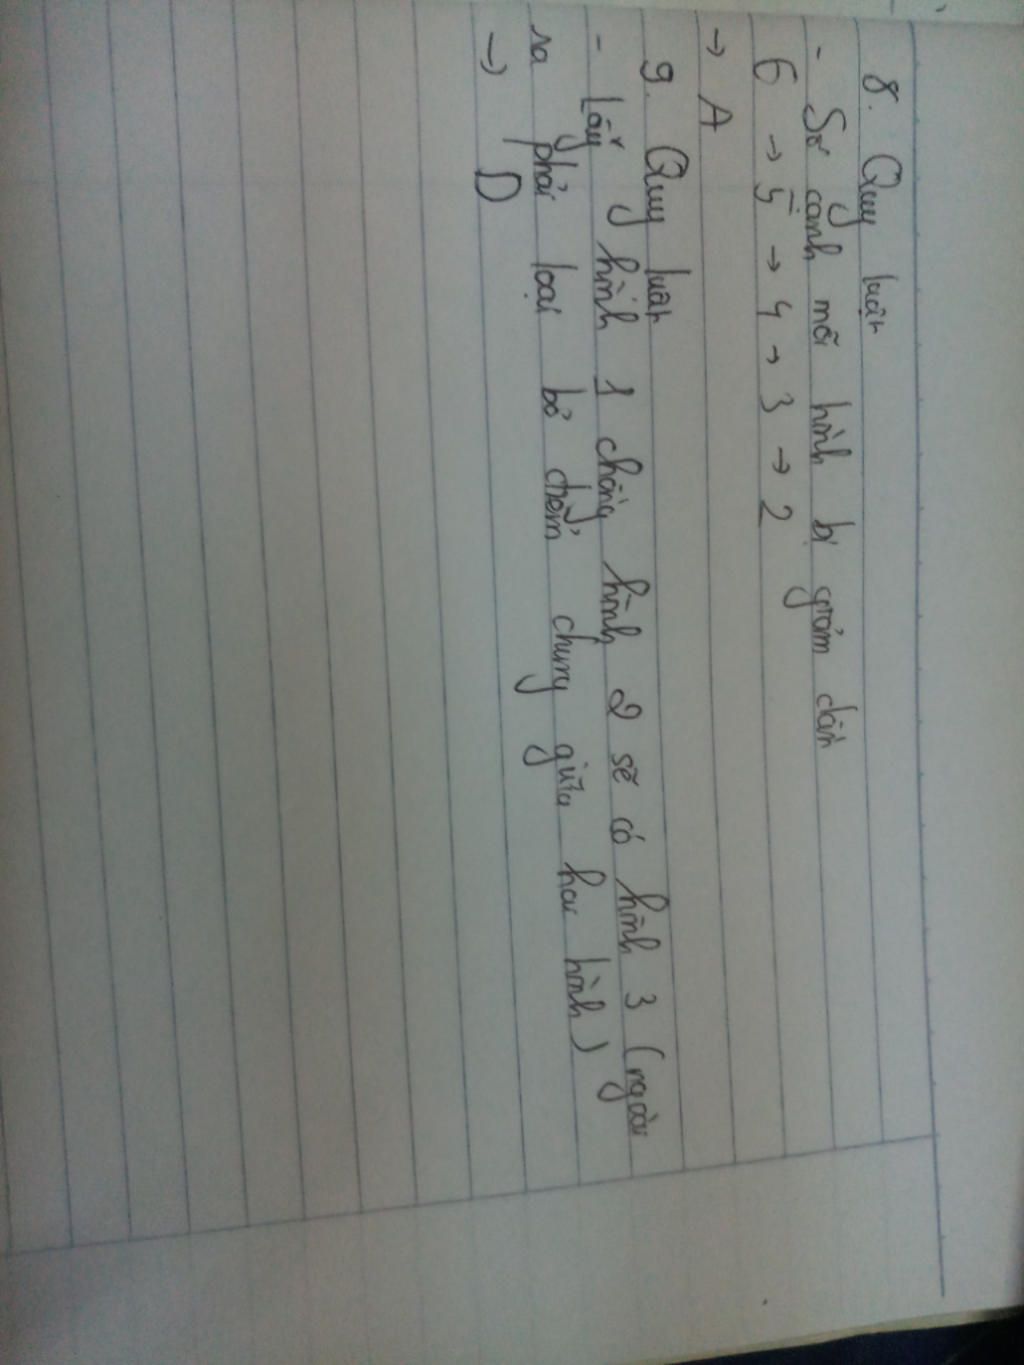 8. Quy luật
- Số cạnh mỗi hình bị giảm dần
6 → 5 → 4 → 3 → 2
→ A
9. Quy luật
- Lấy hình 1 chồng hình 2 sẽ có hình 3 (ngoài
ra phải loại bỏ điểm chung giữa hai hình)
→ D